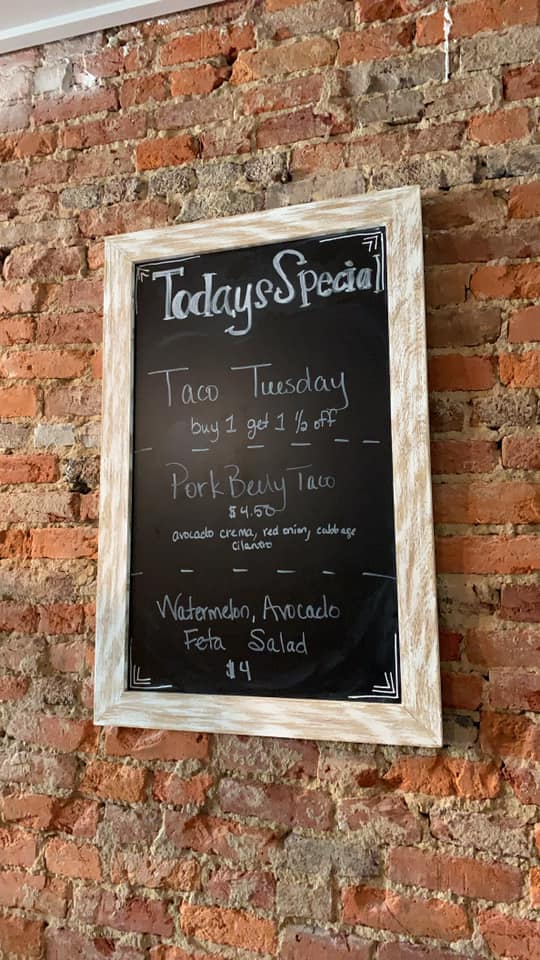 Todays Special
Taco Tuesday
buy 1 get 1 ½ off
Pork Belly Taco
$4.50
avocado crema, red onion, cabbage
cilantro
Watermelon, Avocado
Feta Salad
$4